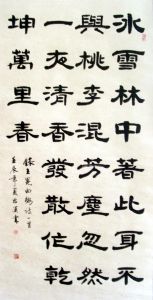 冰雪林中著此身不
與桃李混芳塵忽然
一夜清香發散作乾
坤萬里春
錄王冕白梅詩一首
壬辰 書